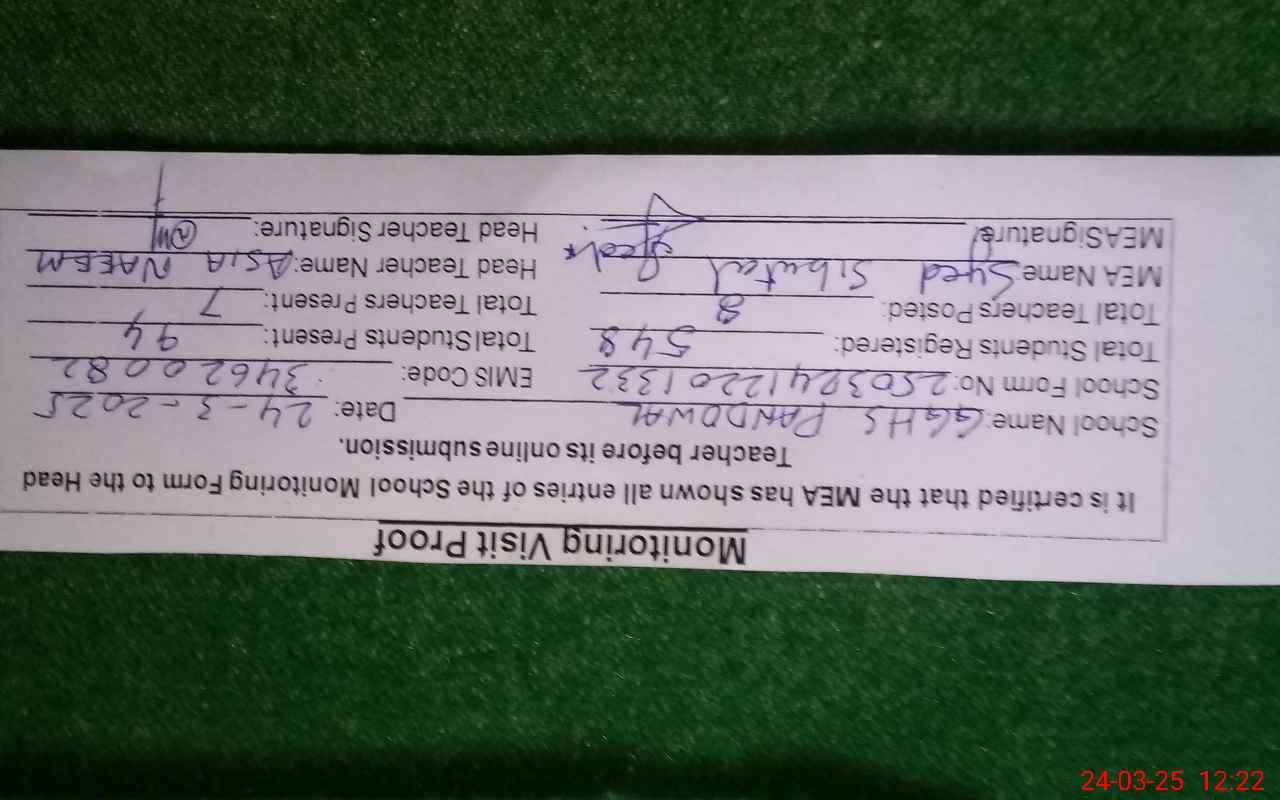 Monitoring Visit Proof
It is certified that the MEA has shown all entries of the School Monitoring Form to the Head
Teacher before its online submission.
School Name: GGHS PANDOWAL Date: 24-3-2025
School Form No: 25032412201332 EMIS Code: 34620082
Total Students Registered: 548 Total Students Present: 94
Total Teachers Posted: 8 Total Teachers Present: 7
MEA Name Syed Sibutal Head Teacher Name: ASIA NAEEM
MEA Signature: Head Teacher Signature:
24-03-25 12:22